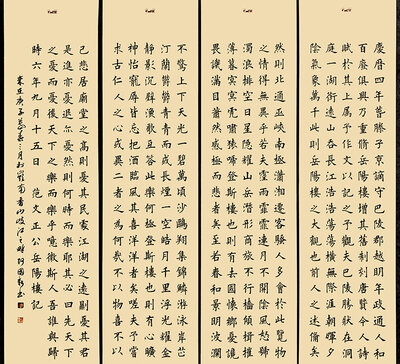 慶曆四年春滕子京謫守巴陵郡越明年政通人和
百廢俱興乃重脩岳陽樓增其舊制刻唐賢今人詩
賦於其上屬予作文以記之予觀夫巴陵勝狀在洞
庭一湖銜遠山吞長江浩浩蕩蕩橫無際涯朝暉夕
陰氣象萬千此則岳陽樓之大觀也前人之述備矣
然則北通巫峽南極瀟湘遷客騷人多會於此覽物
之情得無異乎若夫霪雨霏霏連月不開陰風怒號
濁浪排空日星隱耀山岳潛形商旅不行檣傾楫摧
薄暮冥冥虎嘯猿啼登斯樓也則有去國懷鄉憂讒
畏譏滿目蕭然感極而悲者矣至若春和景明波瀾
不驚上下天光一碧萬頃沙鷗翔集錦鱗游泳岸芷
汀蘭鬱鬱青青而或長煙一空皓月千里浮光耀金
靜影沉璧漁歌互答此樂何極登斯樓也則有心曠
神怡寵辱皆忘把酒臨風其喜洋洋者矣嗟夫予嘗
求古仁人之心或異二者之為何哉不以物喜不以
己悲居廟堂之高則憂其民處江湖之遠則憂其君
是進亦憂退亦憂然則何時而樂耶其必曰先天下
之憂而憂後天下之樂而樂乎噫微斯人吾誰與歸
時六年九月十五日 范文正公岳陽樓記